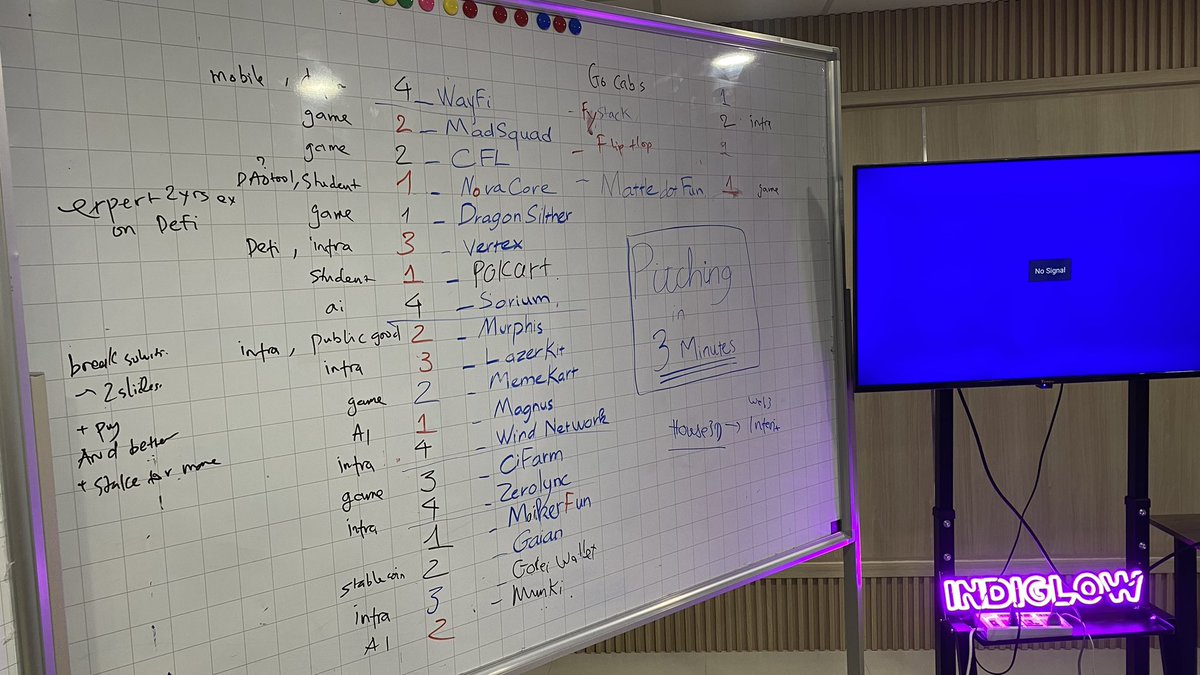 mobile,
4 – WayFi
game 2 – MadSquad
game 2 – CFL
?
DAOtool, Student 1 – NovaCore
game 1 – Dragon Silther
Defi, infra 3 – Vertex
Student 1 – POKart
ai 4 – Sorium.
infra, public good 2 – Murphis
infra 3 – LazerKit
game 2 – MemeKart
AI 1 – Magnus
infra 4 – Wind Network
game 3 – CiFarm
infra 4 – Zerolync
1 – MoikerFun
stablecoin 2 – Gaian
infra 3 – Golei Wallet
AI 2 – Munki
expert 2yrs ex
on Defi
break
~ 2 slides
+ Pry
And better
+ stake for more
!
Go Cabs 1
– Fystack 2 infra
– Flip flop 2
– Matte dot Fun 1 game
Pitching
in
3 Minutes
web3
House3D →
No Signal
INDIGLOW